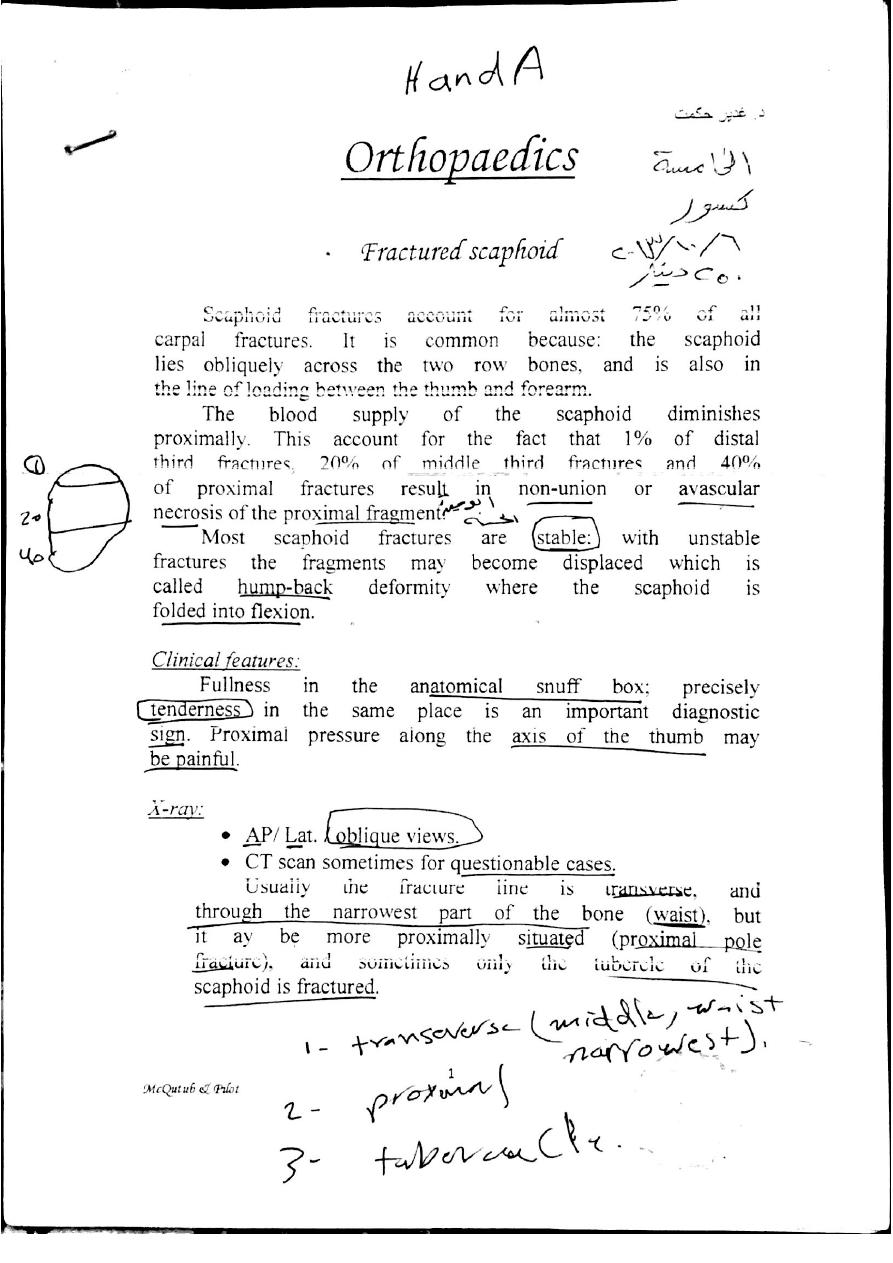 Hand A
د. غدير حكمت
Orthopaedics
الخامسة
كسور
Fractured scaphoid
٢٠١٣/١٠/٦
٢٥٠ دينار
Scaphoid fractures account for almost 75% of all
carpal fractures. It is common because: the scaphoid
lies obliquely across the two row bones, and is also in
the line of loading between the thumb and forearm.
The blood supply of the scaphoid diminishes
proximally. This account for the fact that 1% of distal
third fractures, 20% of middle third fractures and 40%
of proximal fractures result in non-union or avascular
necrosis of the proximal fragment.
1
20
40
Most scaphoid fractures are stable: with unstable
fractures the fragments may become displaced which is
called hump-back deformity where the scaphoid is
folded into flexion.
Clinical features:
Fullness in the anatomical snuff box; precisely
tenderness in the same place is an important diagnostic
sign. Proximal pressure along the axis of the thumb may
be painful.
X-ray:
• AP/ Lat. / oblique views.
• CT scan sometimes for questionable cases.
Usually the fracture line is transverse, and
through the narrowest part of the bone (waist), but
it ay be more proximally situated (proximal pole
fracture), and sometimes only the tubercle of the
scaphoid is fractured.
1- transeverse (middle, waist
narrowest).
McQutub & Pilot
1
2- proximal
3-